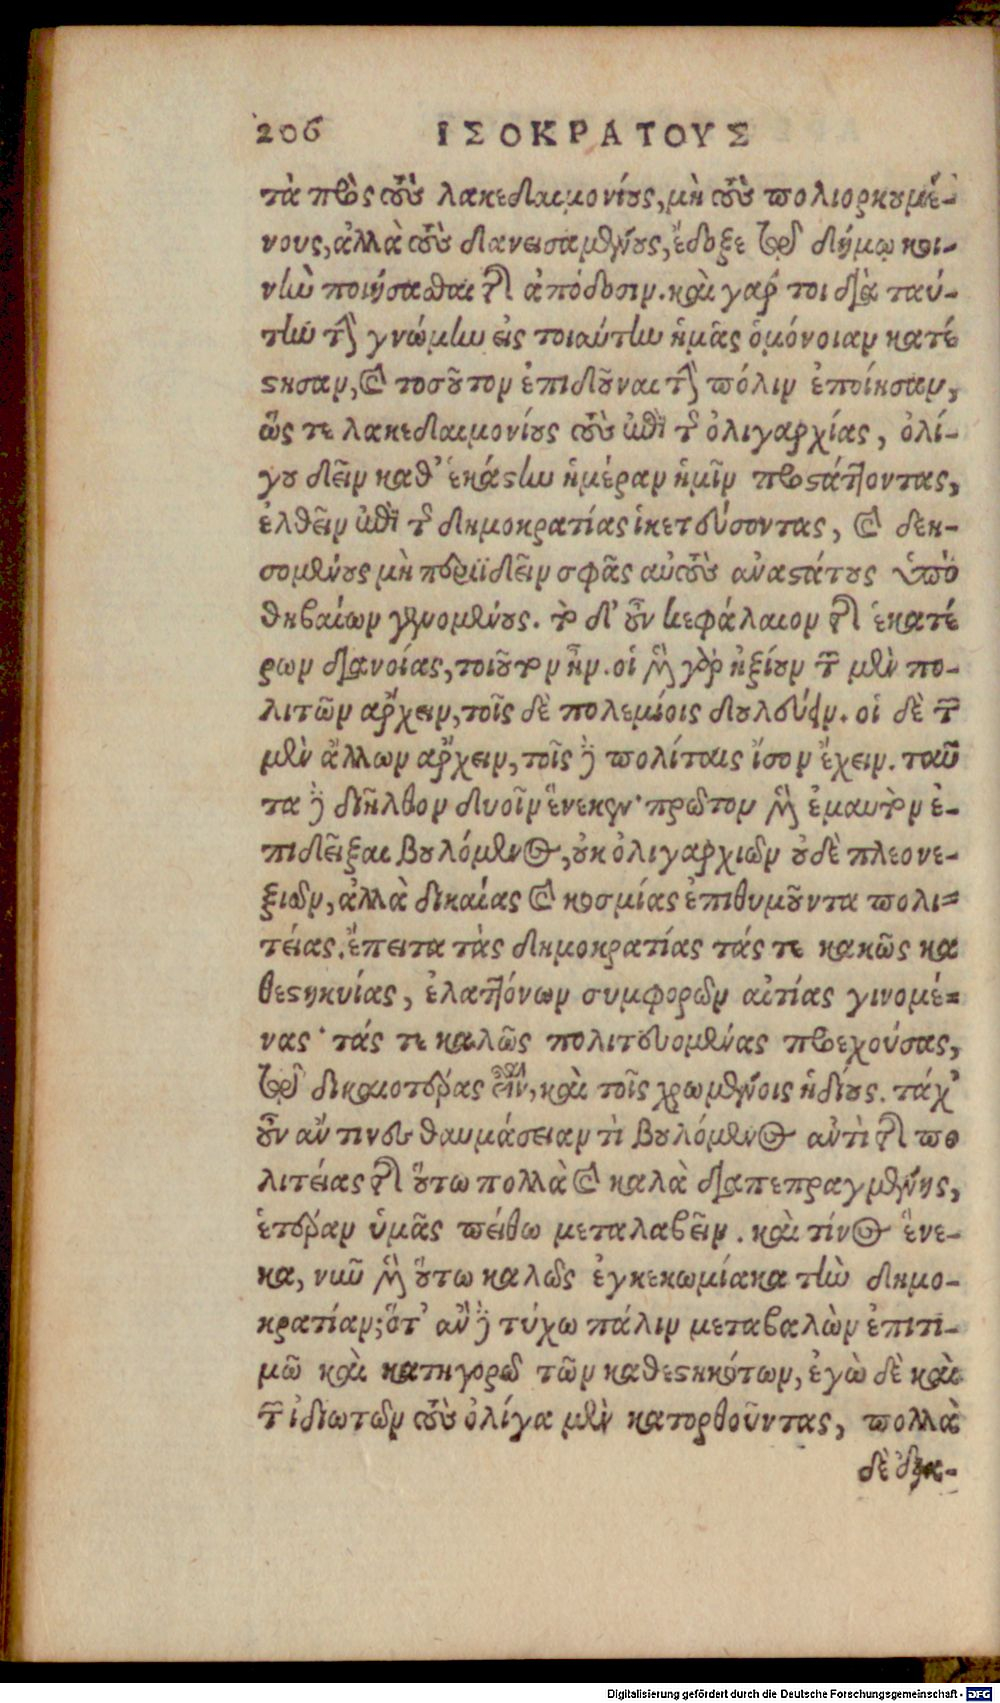 206 ΙΣΟΚΡΑΤΟΥΣ
τὰ πρὸς τοὺς λακεδαιμονίους, μὴ τοὺς πολιορκουμέ-
νους, ἀλλὰ τοὺς δανεισαμένους, ἔδοξε τῷ δήμῳ κοι-
νὴν ποιήσασθαι τὴν ἀπόδοσιν. καὶ γάρ τοι διὰ ταύ-
την τὴν γνώμην εἰς τοιαύτην ἡμᾶς ὁμόνοιαν κατέ
στησαν, καὶ τοσοῦτον ἐπιδοῦναι τὴν πόλιν ἐποίησαν,
ὥς τε λακεδαιμονίους τοὺς ἐπὶ τῆς ὀλιγαρχίας, ὀλί-
γου δεῖν καθ᾽ ἑκάστην ἡμέραν ἡμῖν προστάττοντας,
ἐλθεῖν ἐπὶ τῆς δημοκρατίας ἱκετεύσοντας, καὶ δεη-
σομένους μὴ περιϊδεῖν σφᾶς αὐτοὺς ἀναστάτους ὑπὸ
θηβαίων γενομένους. τὸ δ᾽ οὖν κεφάλαιον τῆς ἑκατέ
ρων διανοίας, τοιοῦτον ἦν. οἱ μὲν γὰρ ἠξίουν τῶν μὲν πο-
λιτῶν ἄρχειν, τοῖς δὲ πολεμίοις δουλεύειν. οἱ δὲ τῶν
μὲν ἄλλων ἄρχειν, τοῖς δὲ πολίταις ἴσον ἔχειν. ταῦ
τα δὲ διῆλθον δυοῖν ἕνεκεν· πρῶτον μὲν ἐμαυτὸν ἐ-
πιδεῖξαι βουλόμενος, οὐκ ὀλιγαρχιῶν οὐδὲ πλεονε-
ξιῶν, ἀλλὰ δικαίας καὶ κοσμίας ἐπιθυμοῦντα πολι-
τείας. ἔπειτα τὰς δημοκρατίας τάς τε κακῶς κα
θεστηκυίας, ἐλαττόνων συμφορῶν αἰτίας γινομέ-
νας· τάς τε καλῶς πολιτευομένας προεχούσας,
τῷ δικαιοτέρας εἶναι, καὶ τοῖς χρωμένοις ἡδίους. τάχ᾽
οὖν ἄν τινες θαυμάσειαν τὶ βουλόμενος ἀντὶ τῆς πο
λιτείας τῆς οὕτω πολλὰ καὶ καλὰ διαπεπραγμένης,
ἑτέραν ὑμᾶς πείθω μεταλαβεῖν. καὶ τίνος ἕνε-
κα, νῦν μὲν οὕτω καλῶς ἐγκεκωμίακα τὴν δημο-
κρατίαν; ὅτ᾽ ἂν δὲ τύχω πάλιν μεταβαλὼν ἐπιτι-
μῶ καὶ κατηγορῶ τῶν καθεστηκότων, ἐγὼ δὲ καὶ
τῶν ἰδιωτῶν τοὺς ὀλίγα μὲν κατορθοῦντας, πολλὰ
δὲ ἐξα-
Digitalisierung gefördert durch die Deutsche Forschungsgemeinschaft - DFG